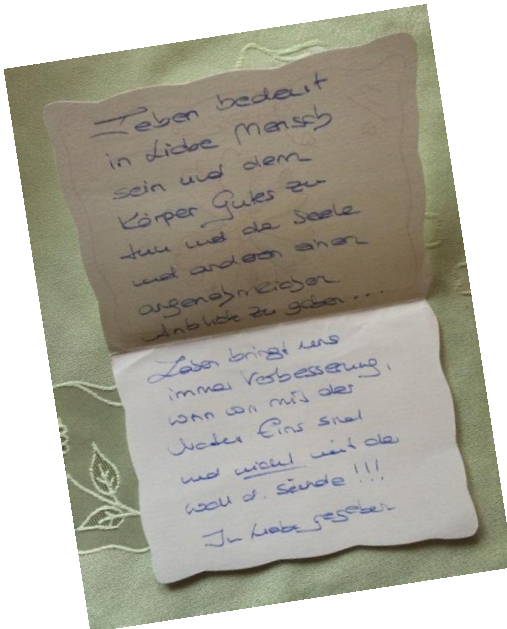 Leben bedeut
in Liebe Mensch
sein und dem
Körper Gutes zu
tun und der Seele
und anderen einen
angenehmeichen
Anblick zu geben...
Leben bringt uns
immer Verbesserung,
wenn wir mit der
Natur Eins sind
und nicht mit der
Welt d. Sünde!!!
In Liebe gegeben